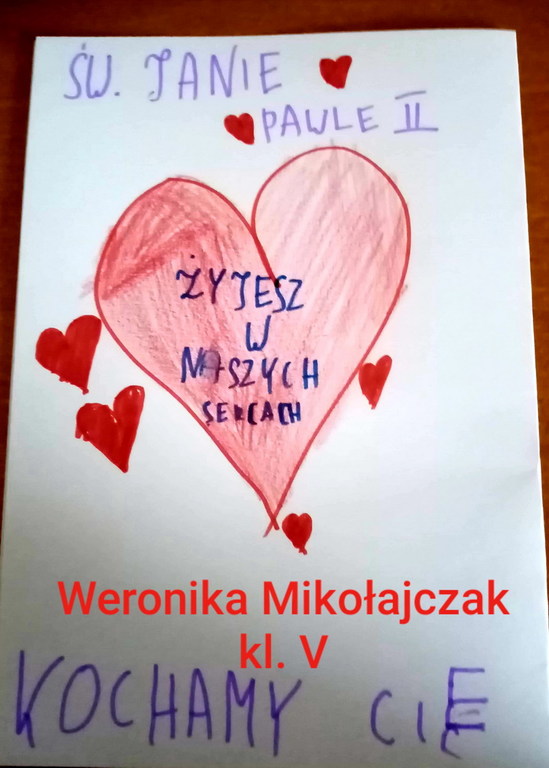 ŚW. JANIE
PAWLE II
ŻYJESZ
W
NASZYCH
SERCACH
Weronika Mikołajczak
kl. V
KOCHAMY CIĘ